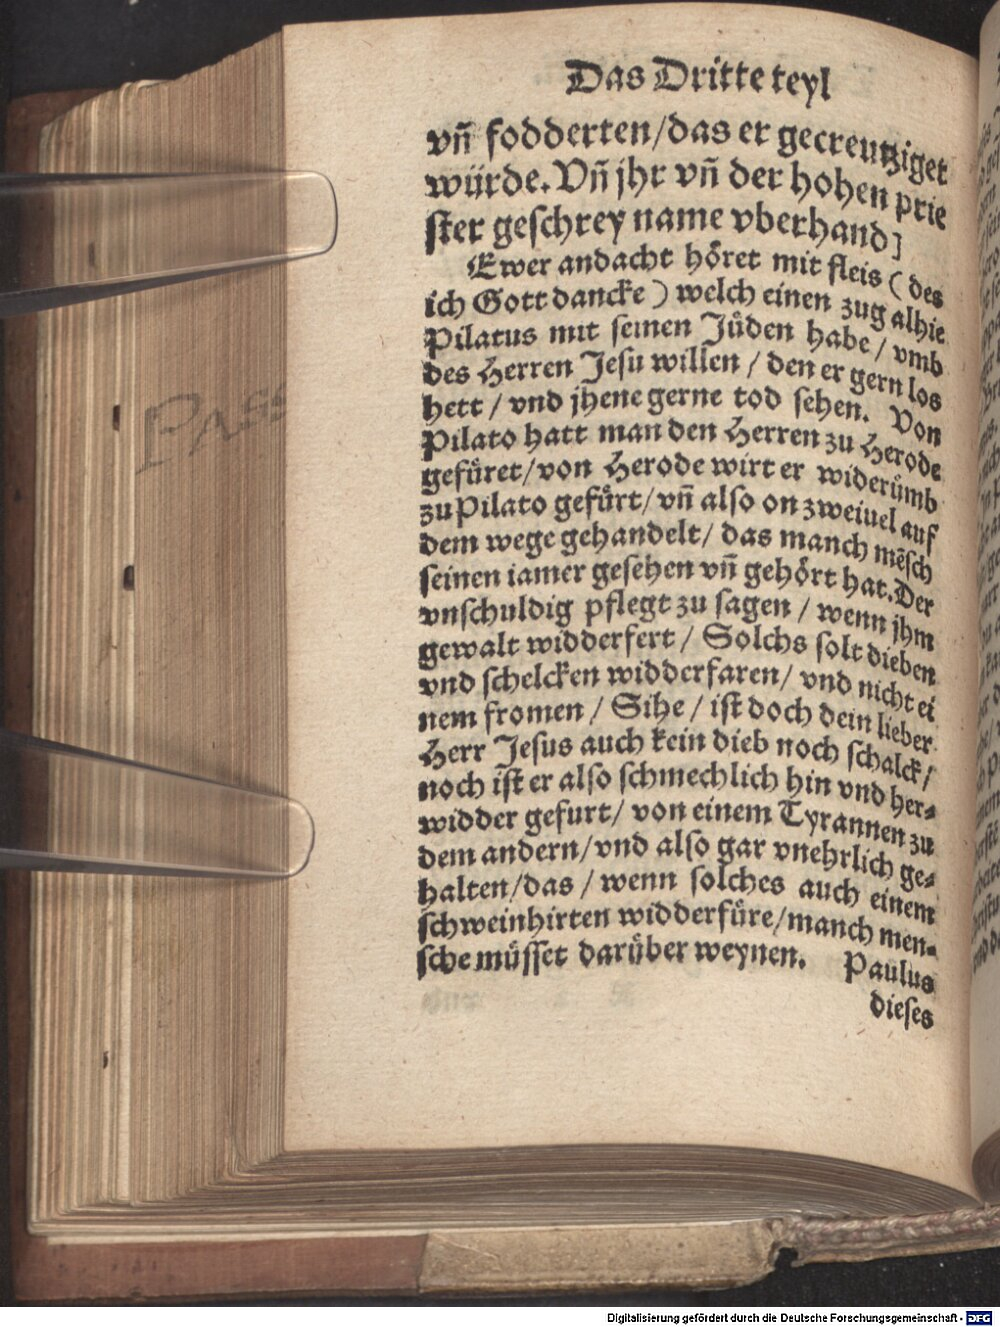 Das Dritte teyl
vñ fodderten/das er gecreutziget
würde. Vñ jhr vñ der hohen prie
ster geschrey name vberhand]
Ewer andacht höret mit fleis (des
ich Gott dancke) welch einen zug alhie
Pilatus mit seinen Jüden habe/ vmb
des Herren Jesu willen/ den er gern los
hett/ vnd jhene gerne tod sehen. Von
Pilato hatt man den Herren zu Herode
gefüret/von Herode wirt er widerümb
zu Pilato gefürt/vñ also on zweiuel auf
dem wege gehandelt/ das manch mẽsch
seinen iamer gesehen vñ gehört hat. Der
vnschuldig pflegt zu sagen/ wenn jhm
gewalt widderfert/ Solchs solt dieben
vnd schelcken widderfaren/ vnd nicht ei
nem fromen/ Sihe/ ist doch dein lieber
Herr Jesus auch kein dieb noch schalck/
noch ist er also schmechlich hin vnd her-
widder gefurt/ von einem Tyrannen zu
dem andern/vnd also gar vnehrlich ge-
halten/das/ wenn solches auch einem
schweinhirten widderfüre/manch men-
sche müsset darüber weynen. Paulus
dieses
PASS
Digitalisierung gefördert durch die Deutsche Forschungsgemeinschaft - DFG